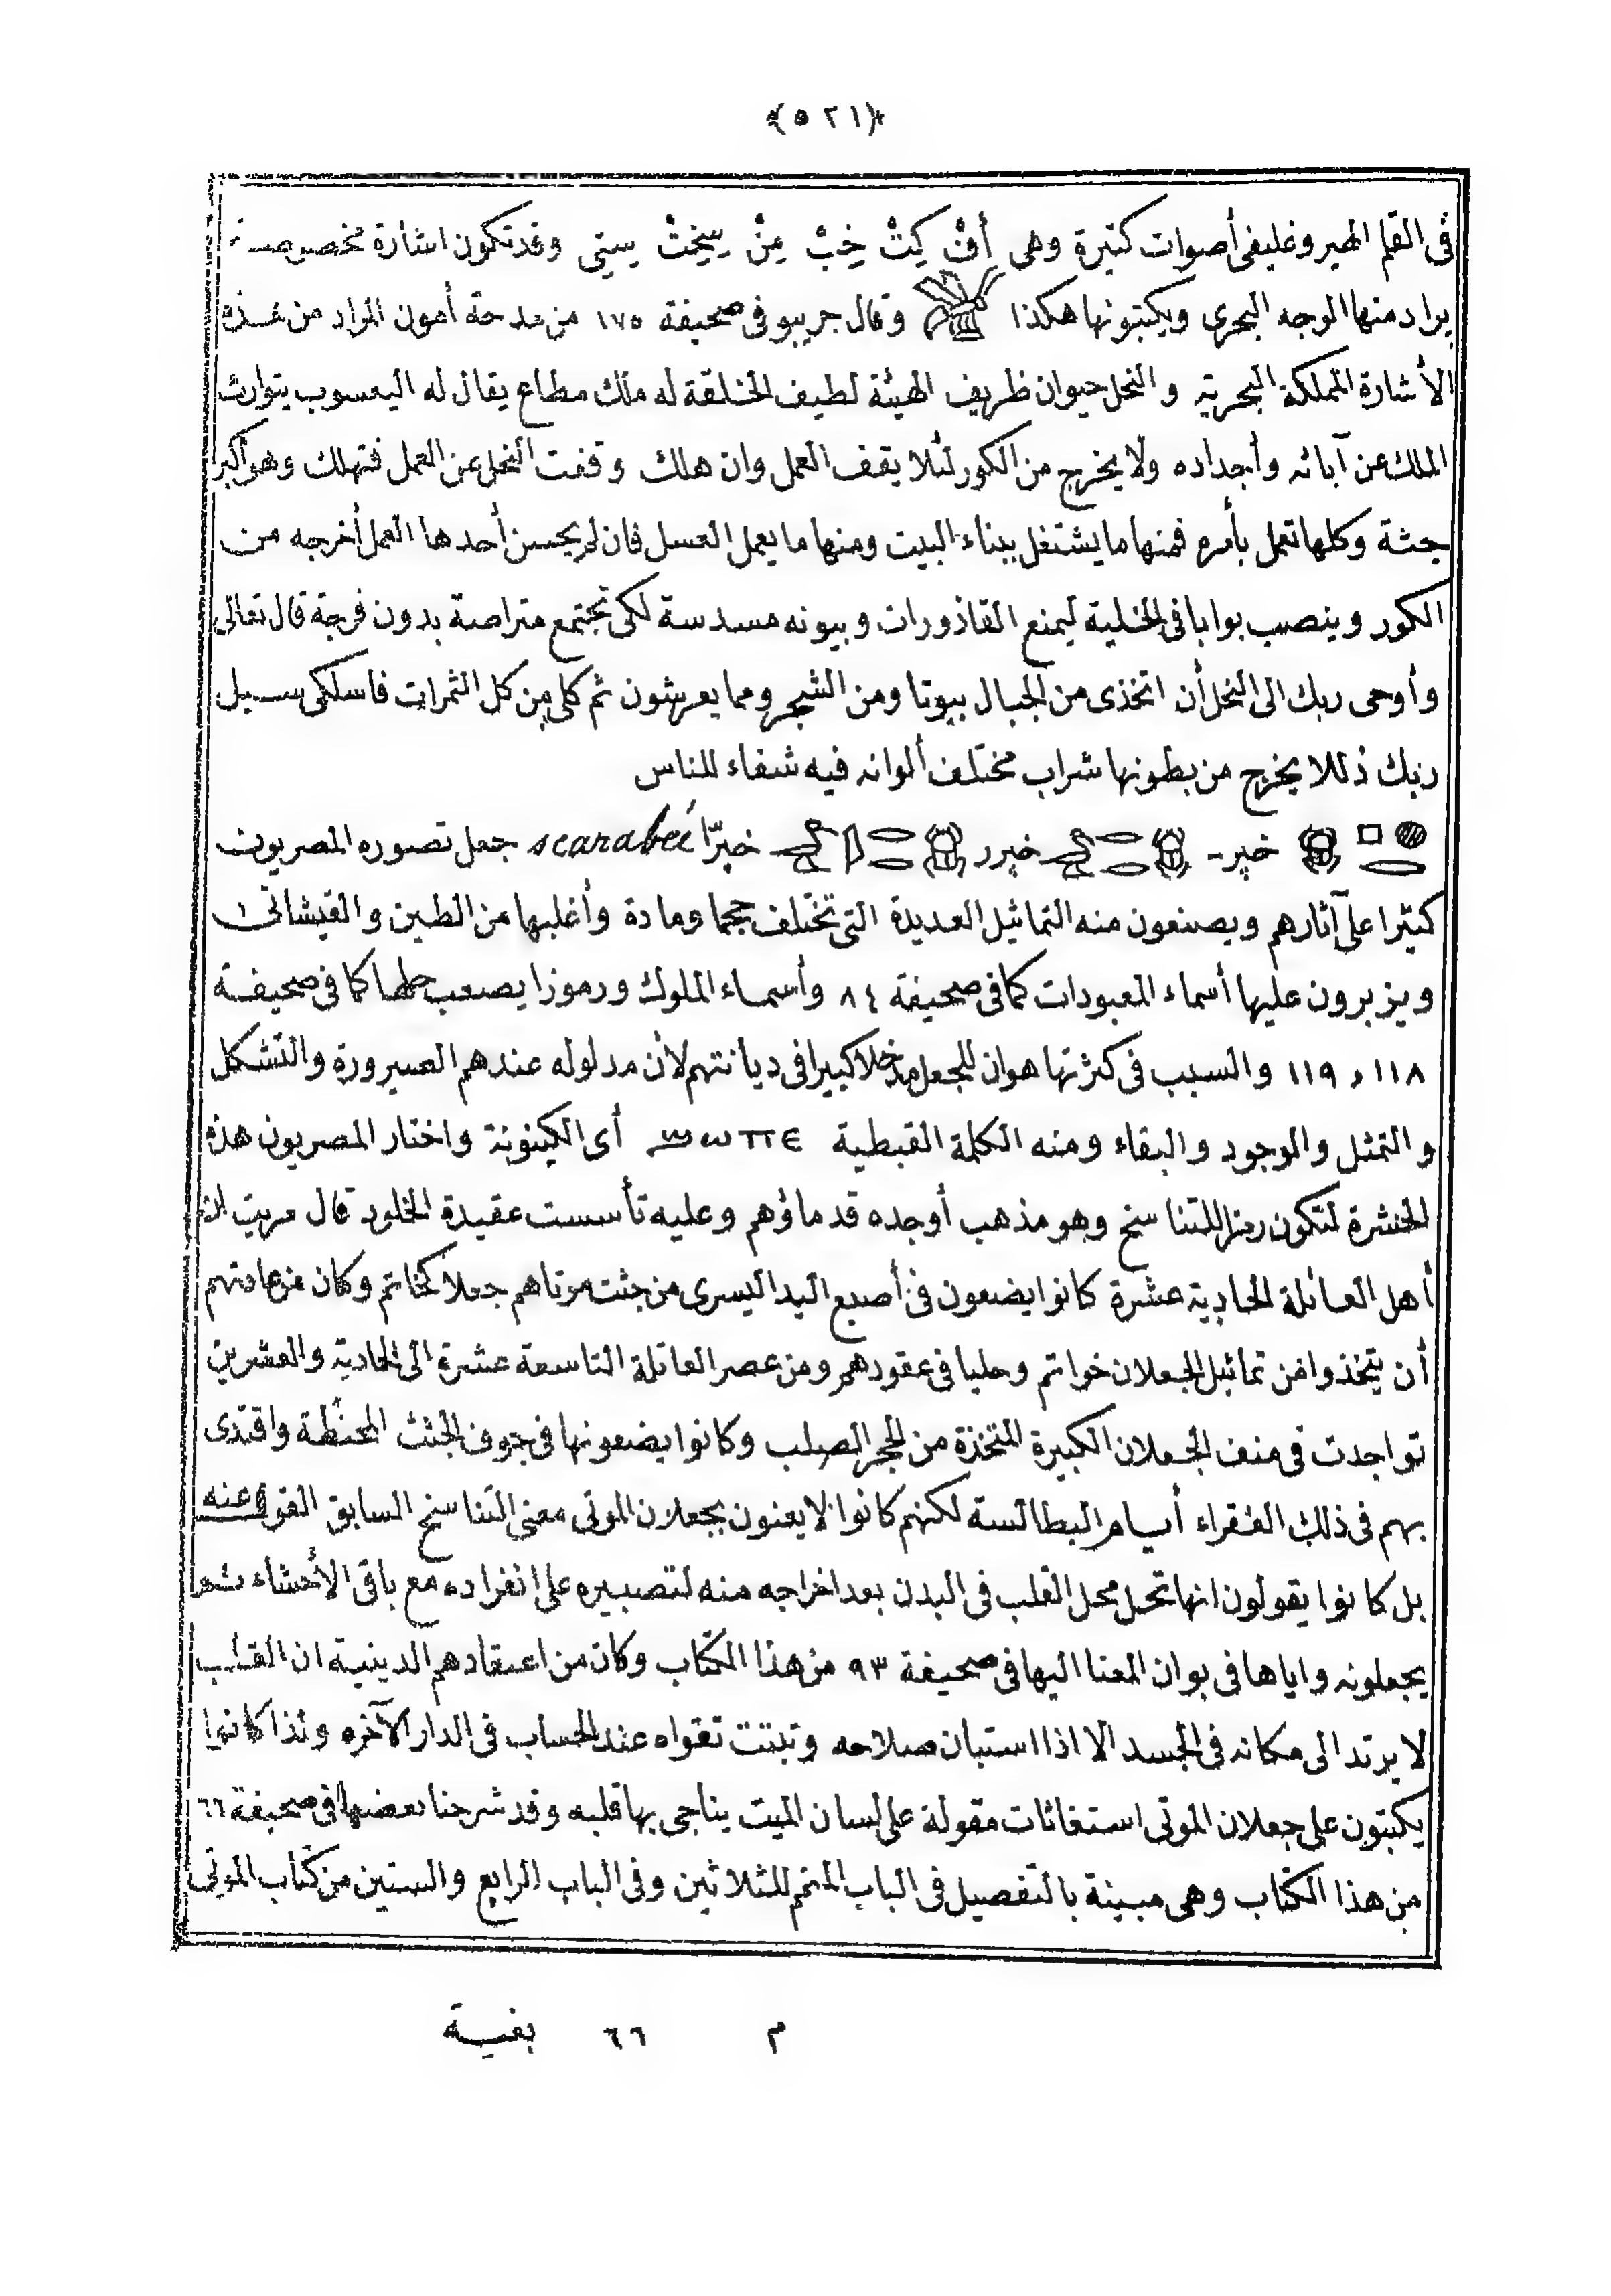 ﴿٥٢١﴾
فى القلم الهيروغليفى أصوات كثيرة وهى أَفْ كِتْ خِبْ مِنْ سِخِتْ سِتِى وقد تكون اشارة مخصوصة
يراد منها الوجه البحرى ويكتبونها هكذا وقال جريبو فى صحيفة ١٧٥ من مدحة أمون المراد من هذه
الأشارة المملكة البحرية والنحل حيوان ظريف الهيئة لطيف الخلقة له ملك مطاع يقال له اليعسوب يتوارث
الملك عن آبائه وأجداده ولا يخرج من الكور لئلا يقف العمل وان هلك وقفت النحل عن العمل فتهلك وهو أكبر
جثة وكلها تعمل بأمره فمنها ما يشتغل ببناء البيت ومنها ما يعمل العسل فان لم يحسن أحدها العمل أخرجه من
الكور وينصب بوابا فى الخلية ليمنع القاذورات وبيوته مسدسة لكى تجتمع متراصة بدون فرجة قال تعالى
وأوحى ربك الى النحل أن اتخذى من الجبال بيوتا ومن الشجر ومما يعرشون ثم كلى من كل الثمرات فاسلكى سبل
ربك ذللا يخرج من بطونها شراب مختلف ألوانه فيه شفاء للناس
خپر - خپرر خپرّا scarabée جعل تصوره المصريون
كثيرا على آثارهم ويصنعون منه التماثيل العديدة التى تختلف حجما ومادة وأغلبها من الطين والقيشانى
ويزبرون عليها أسماء المعبودات كما فى صحيفة ٨٤ وأسماء الملوك ورموزا يصعب حلها كما فى صحيفة
١١٨ و ١١٩ والسبب فى كثرتها هو ان للجعل مدخلا كبيرا فى ديانتهم لأن مدلوله عندهم الصيرورة والتشكل
والتمثل والوجود والبقاء ومنه الكلمة القبطية ϣωπε أى الكينونة واختار المصريون هذه
الخنشرة لتكون رمزا للتناسخ وهو مذهب أوجده قدماؤهم وعليه تأسست عقيدة الخلود قال مريت ان
أهل العائلة الحادية عشرة كانوا يضعون فى أصبع اليد اليسرى من جثت موتاهم جعلا كخاتم وكان من عادتهم
أن يتخذوا من تماثيل الجعلان خواتم وحليا فى عقودهم ومن عصر العائلة التاسعة عشرة الى الحادية والعشرين
تواجدت فى منف الجعلان الكبيرة المتخذة من الحجر الصلب وكانوا يضعونها فى جوف الجثث المحنطة واقتدى
بهم فى ذلك الفقراء أيام البطالسة لكنهم كانوا لا يعنون بجعلان الموتى معنى التناسخ السابق القول عنه
بل كانوا يقولون انها تحل محل القلب فى البدن بعد اخراجه منه لتصبيره على انفراده مع باقى الأحشاء ثم
يجعلونه واياها فى بوان المعنا اليها فى صحيفة ٩٣ من هذا الكتاب وكان من اعتقادهم الدينية ان القلب
لا يرتد الى مكانه فى الجسد الا اذا استبان صلاحه وتبتت تقواه عند الحساب فى الدار الآخره ولذا كانوا
يكتبون على جعلان الموتى استغاثات مقولة على لسان الميت يناجى بها قلبه وقد شرحنا بعضها فى صحيفة ٦٦
من هذا الكتاب وهى مبينة بالتفصيل فى الباب المتمم للثلاثين وفى الباب الرابع والستين من كتاب الموتى
م ٦٦ بغية